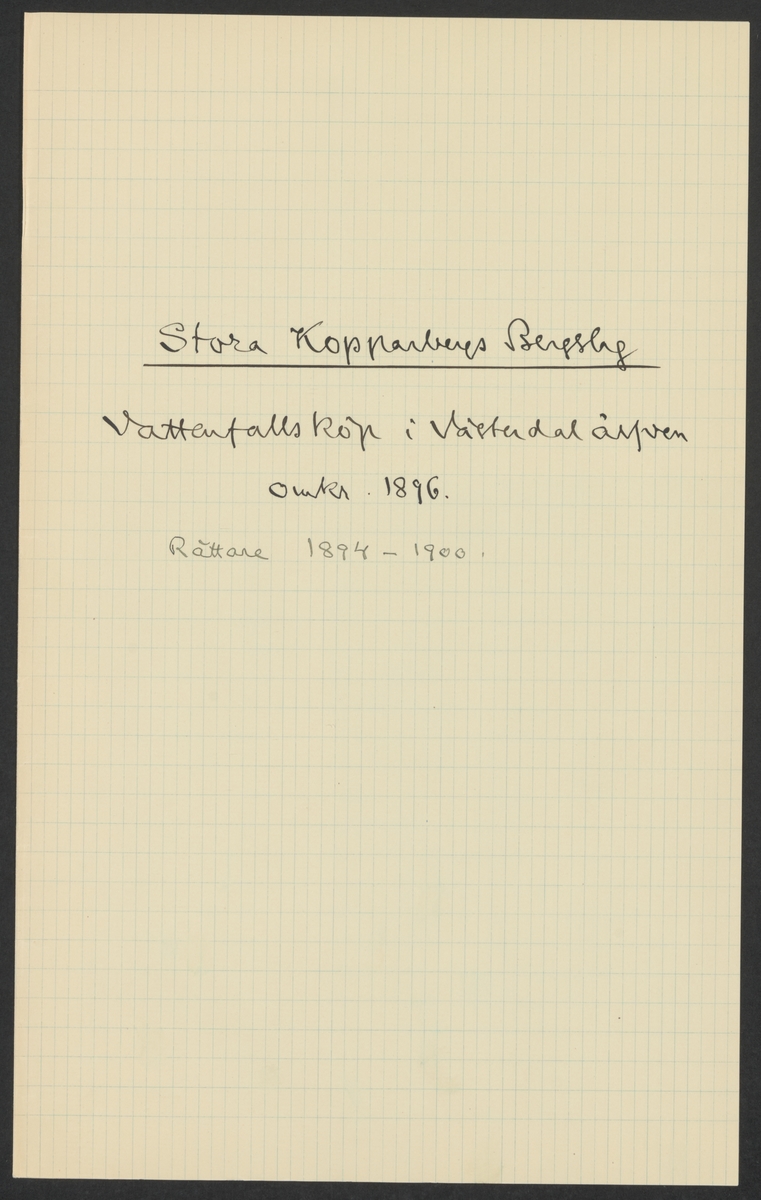 Stora Kopparbergs Bergslag
Vattenfallsköp i Västerdalälfven
omkr. 1896.
Rättare 1894 – 1900.